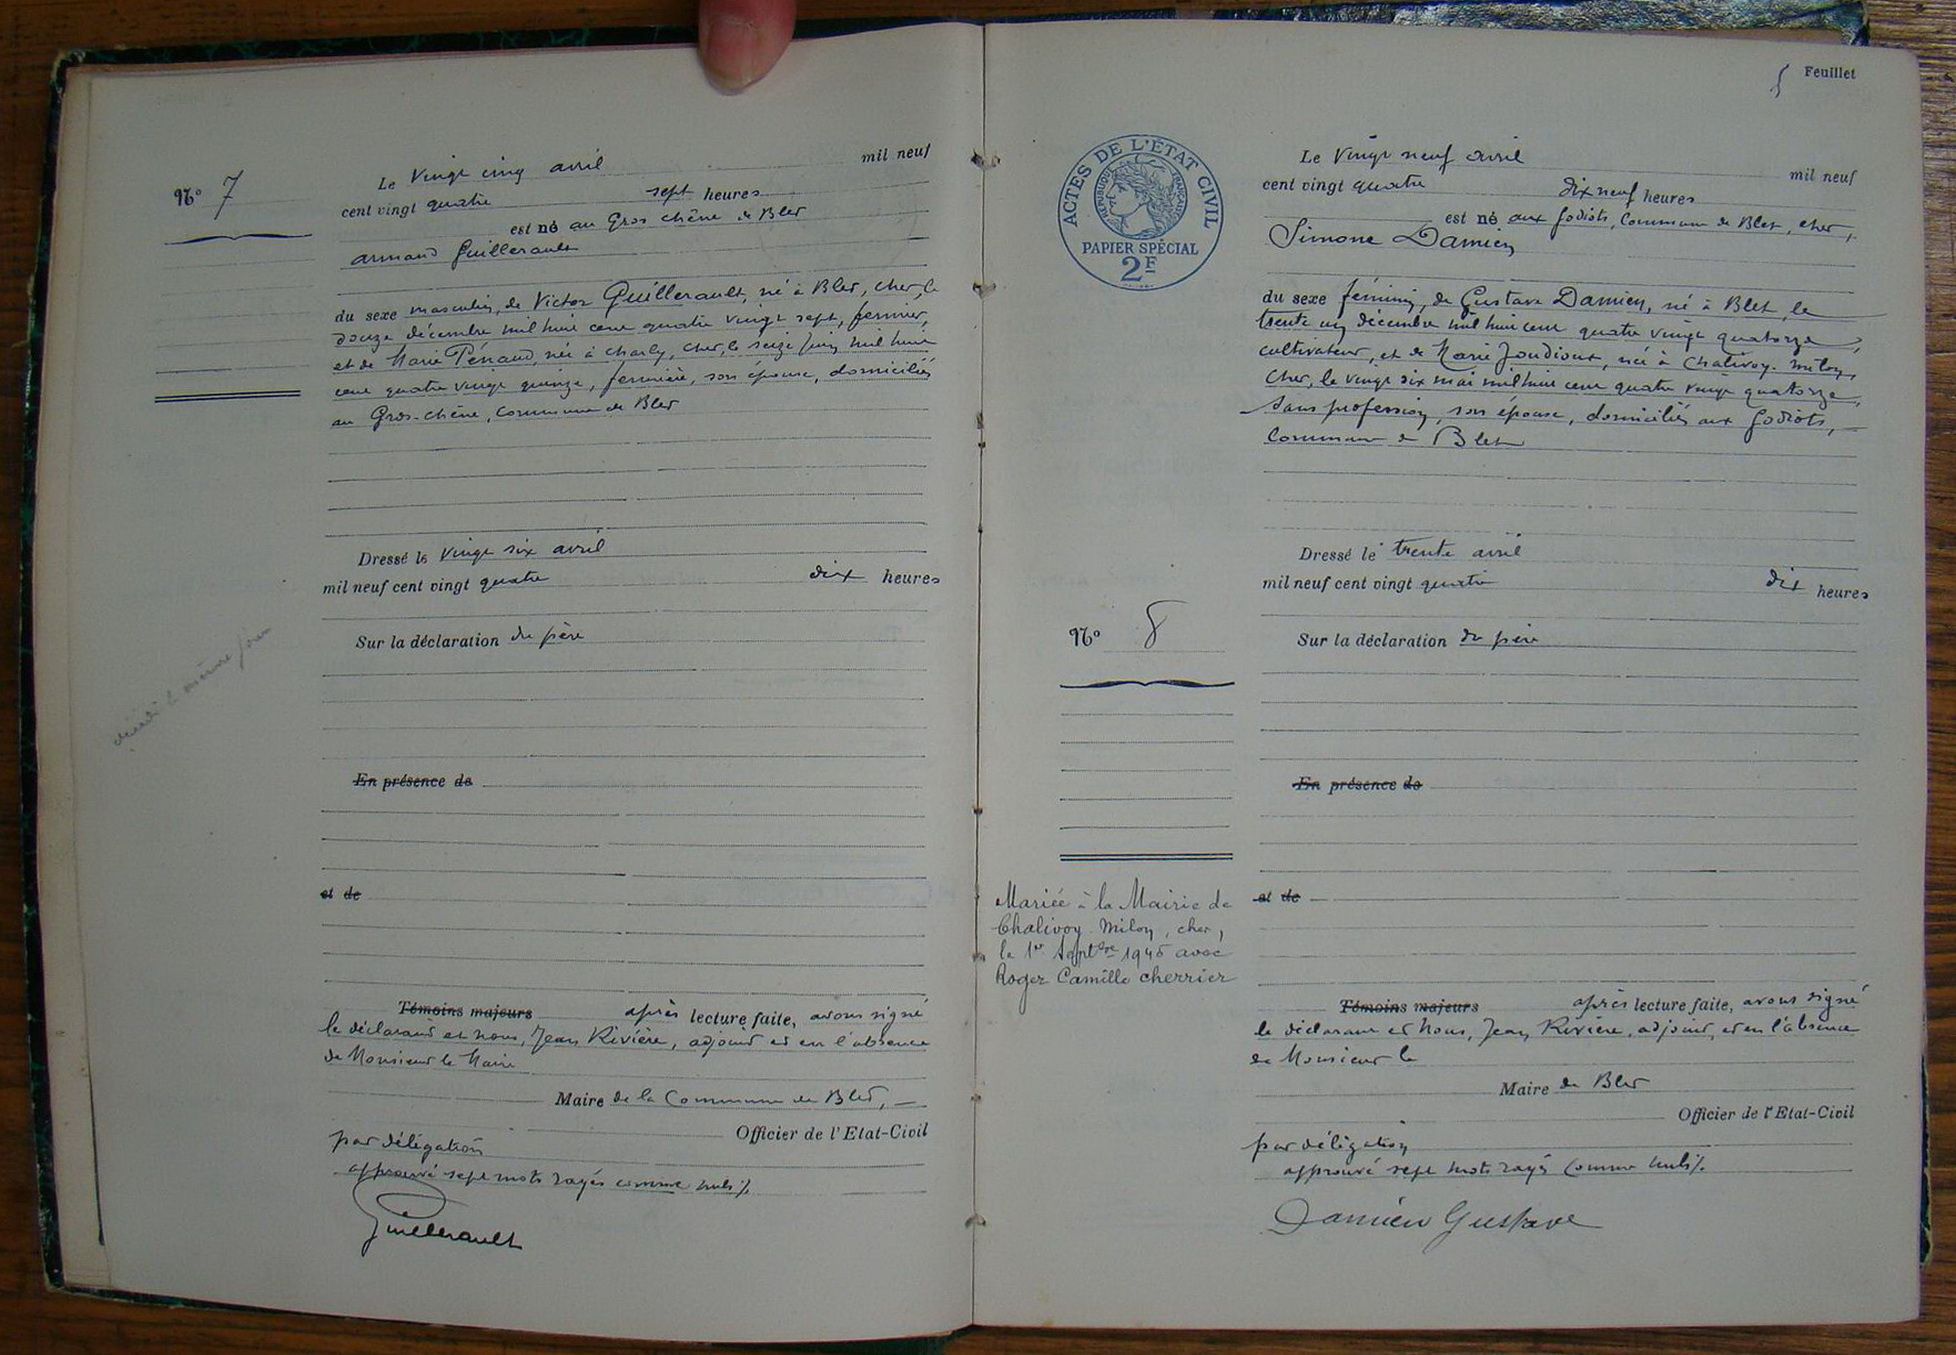 N° 7
Le vingt cinq avril mil neuf
cent vingt quatre sept heures
est né au Gros chêne de Blet
armand Guillerault
du sexe masculin, de Victor Guillerault, né à Blet, cher, le
douze décembre mil huit cent quatre vingt sept, fermier,
et de Marie Pénaud, née à charly, cher, le seize juin mil huit
cent quatre vingt quinze, fermière, son épouse, domiciliés
au Gros-chêne, commune de Blet
Dressé le vingt six avril
mil neuf cent vingt quatre dix heures
Sur la déclaration du père
décédé le même jour
En présence de
et de
Témoins majeurs après lecture faite, avons signé
le déclarant et nous, Jean Rivière, adjoint et en l'absence
de Monsieur le Maire
Maire de la Commune de Blet, —
Officier de l'Etat-Civil
par délégation
approuvé sept mots rayés comme nuls ./.
Guillerault
5 Feuillet
ACTES DE L'ÉTAT CIVIL
REPUBLIQUE FRANÇAISE
PAPIER SPÉCIAL
2F
Le vingt neuf avril mil neuf
cent vingt quatre dix neuf heures
est né aux Godiots, commune de Blet, cher,
Simone Damien
du sexe féminin, de Gustave Damien, né à Blet, le
trente un décembre mil huit cent quatre vingt quatorze,
cultivateur, et de Marie Joudioux, née à Chalivoy-Milon,
Cher, le vingt six mai mil huit cent quatre vingt quatorze,
sans profession, son épouse, domiciliés aux Godiots, —
Commune de Blet
Dressé le trente avril
mil neuf cent vingt quatre dix heures
N° 8
Sur la déclaration du père
En présence de
et de
Mariée à la Mairie de
Chalivoy-Milon, cher,
le 1er Septbre 1945 avec
Roger Camille cherrier
Témoins majeurs après lecture faite, avons signé
le déclarant et Nous, Jean Rivière, adjoint, et en l'absence
de Monsieur le
Maire de Blet
Officier de l'Etat-Civil
par délégation
approuvé sept mots rayés comme nuls ./.
Damien Gustave